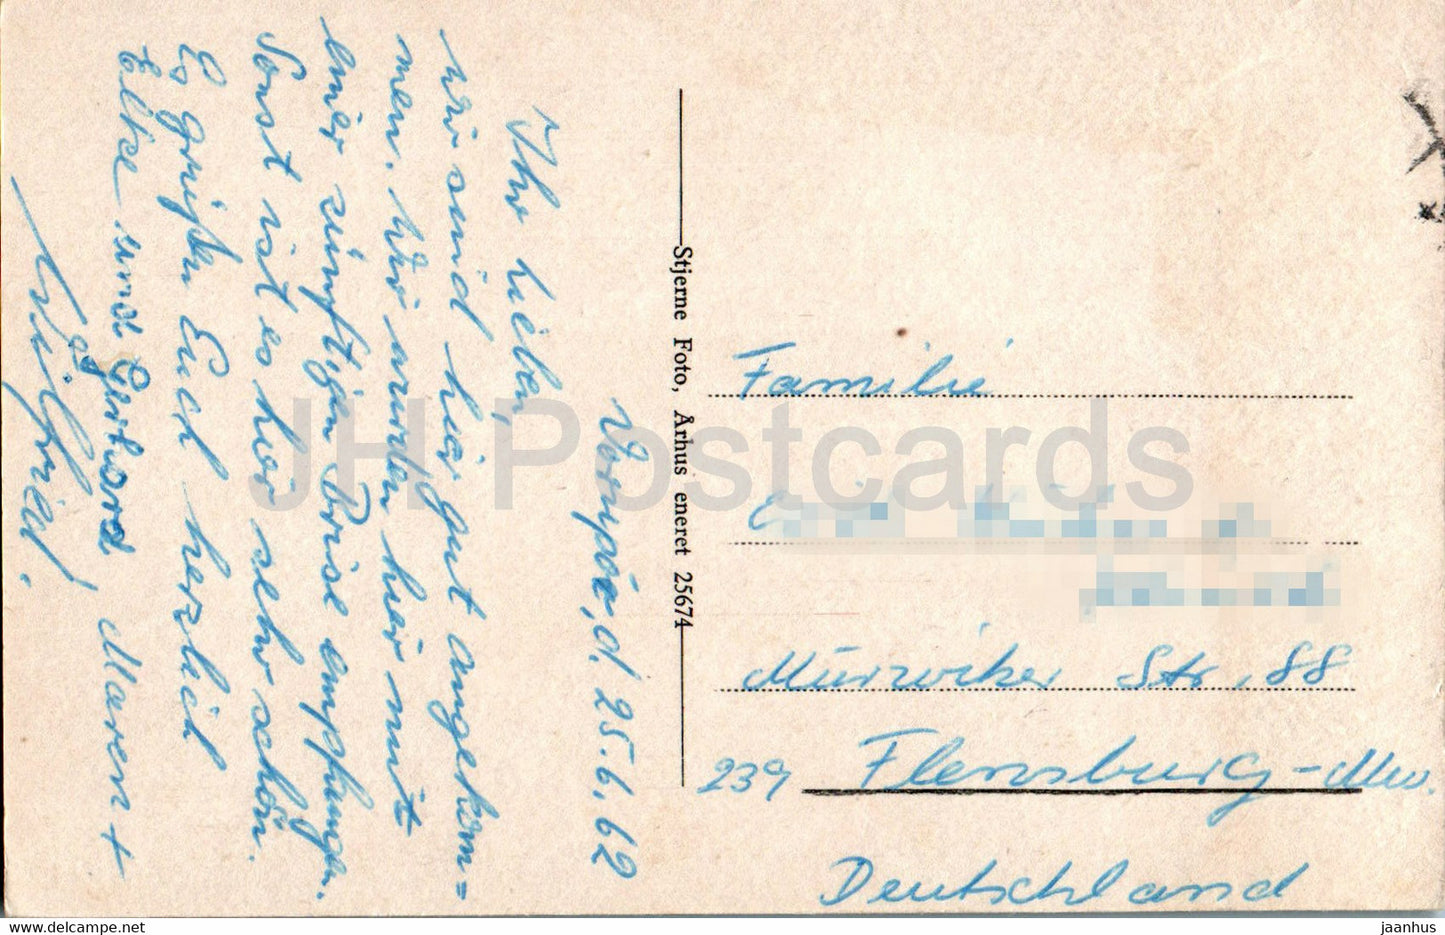 Vorupör, d. 25.6.62
Ihr lieben,
wir sind hier gut angekom=
men. Wir wurden hier mit
einer zünftigen Brise empfangen.
Sonst ist es hier sehr schön.
Es grüßen Euch herzlich
Elke und Gerhard, Maren +
Wilfried.
Stjerne Foto, Århus eneret 25674
Familie
Mürwiker Str. 88
239 Flensburg-Mw.
Deutschland
JH Postcards
www.delcampe.net
jaanhus